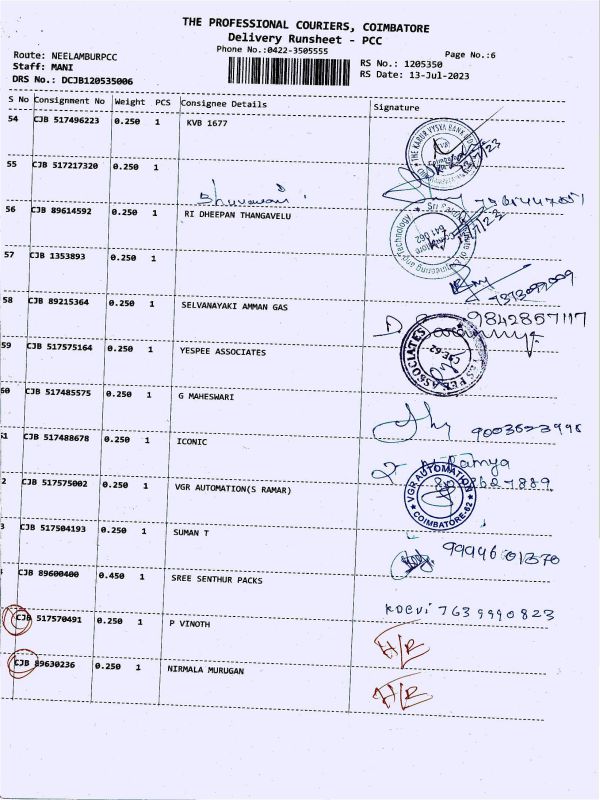 THE PROFESSIONAL COURIERS, COIMBATORE
Delivery Runsheet - PCC
Phone No.:0422-3505555
Page No.:6
Route: NEELAMBURPCC
Staff: MANI
DRS No.: DCJB120535006
RS No.: 1205350
RS Date: 13-Jul-2023
S No Consignment No Weight PCS Consignee Details Signature
54 CJB 517496223 0.250 1 KVB 1677
THE KARUR VYSYA BANK
55 CJB 517217320 0.250 1
56 CJB 89614592 0.250 1 RI DHEEPAN THANGAVELU
641 062
57 CJB 1353893 0.250 1
58 CJB 89215364 0.250 1 SELVANAYAKI AMMAN GAS
9842857117
59 CJB 517575164 0.250 1 YESPEE ASSOCIATES
ASSOCIATES
CBE-62
60 CJB 517485575 0.250 1 G MAHESWARI
61 CJB 517488678 0.250 1 ICONIC
Ramya
2 CJB 517575002 0.250 1 VGR AUTOMATION(S RAMAR)
VGR AUTOMATION
COIMBATORE-62
3 CJB 517504193 0.250 1 SUMAN T
9994601370
CJB 89600400 0.450 1 SREE SENTHUR PACKS
7639990823
CJB 517570491 0.250 1 P VINOTH
H/R
CJB 89630236 0.250 1 NIRMALA MURUGAN
H/R